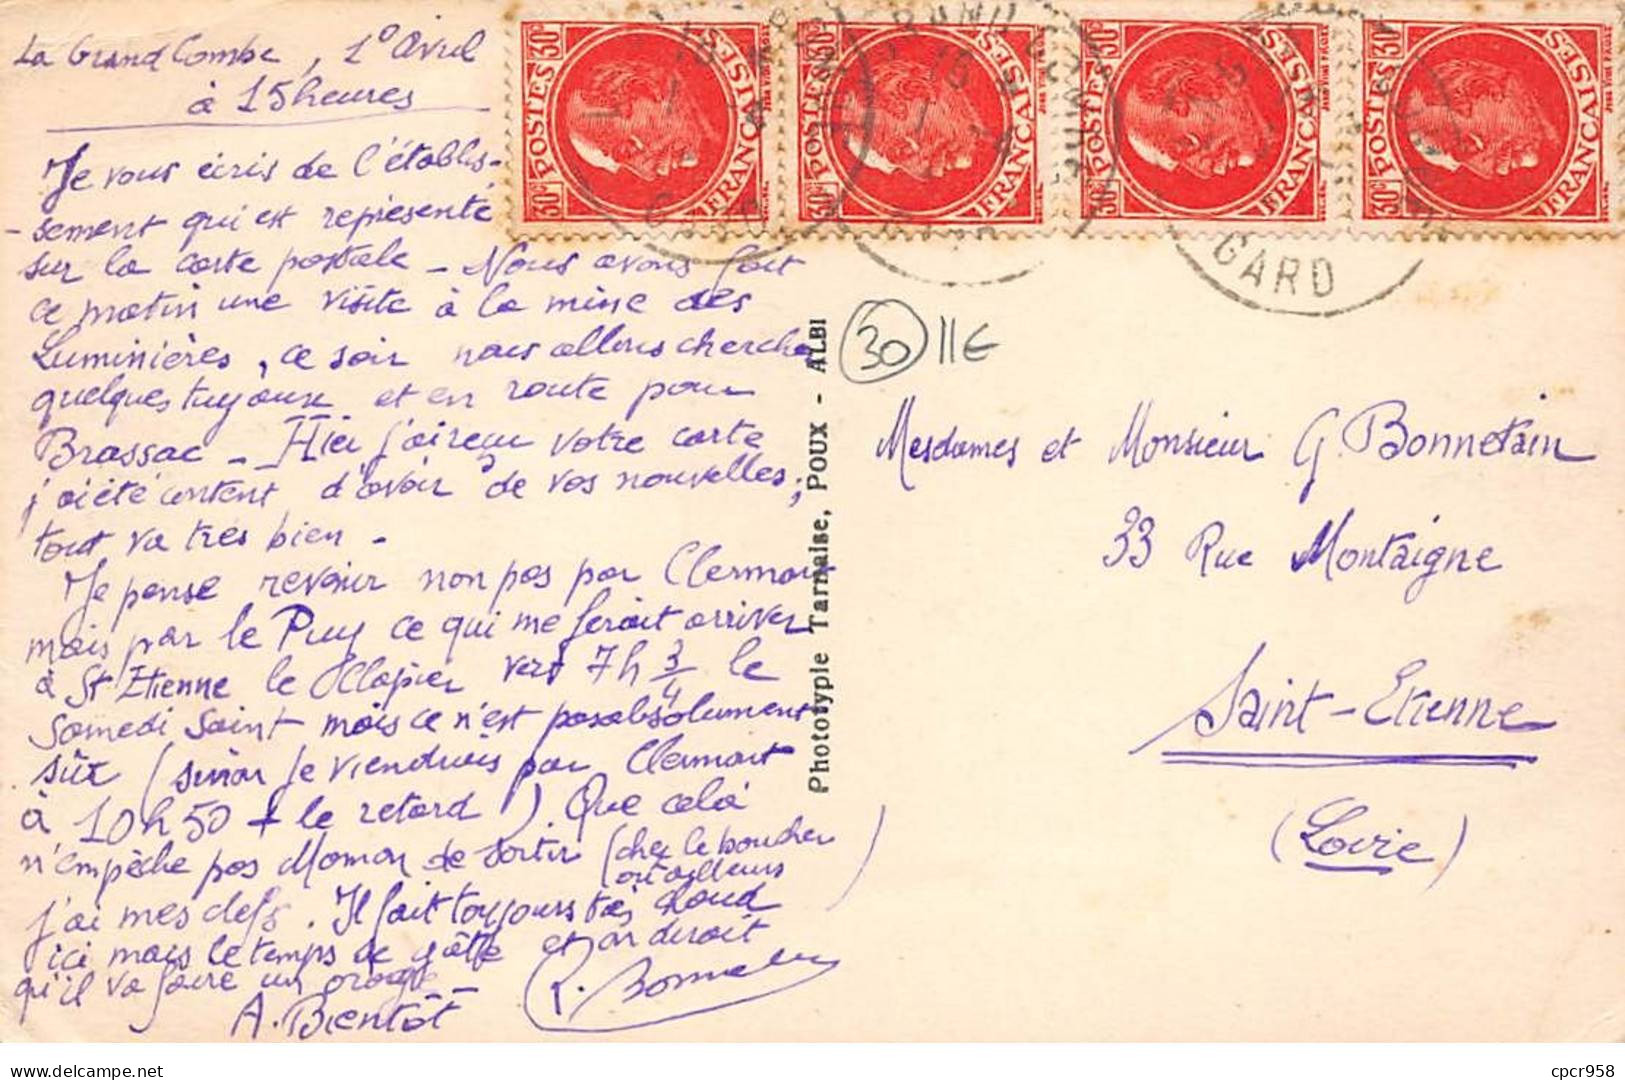 La Grand Combe, 1º Avril
à 15 heures
Je vous écris de l'établis-
-sement qui est représenté
sur la carte postale - Nous avons fait
ce matin une visite à la mine des
Luminières, ce soir nous allons chercher
quelques tuyaux et en route pour
Brassac - Hier j'ai reçu votre carte
j'ai été content d'avoir de vos nouvelles;
tout va très bien -
Je pense revenir non pas par Clermont
mais par le Puy ce qui me ferait arriver
à St Etienne le Clapier vers 7h 3/4 le
Samedi Saint mais ce n'est pas absolument
sûr (sinon je viendrais par Clermont
à 10h50 + le retard). Que celà
n'empêche pas Maman de sortir (chez le boucher
ou ailleurs)
j'ai mes clefs. Il fait toujours très chaud
ici mais le temps se gâte et on dirait
qu'il va faire un orage -
A. Bientôt
POSTES FRANÇAISES
30c
POSTES FRANÇAISES
30c
POSTES FRANÇAISES
30c
POSTES FRANÇAISES
30c
GARD
30 11€
Phototyple Tarnaise, POUX - ALBI
Mesdames et Monsieur G. Bonnetain
33 Rue Montaigne
Saint-Etienne
(Loire)
cpcr958